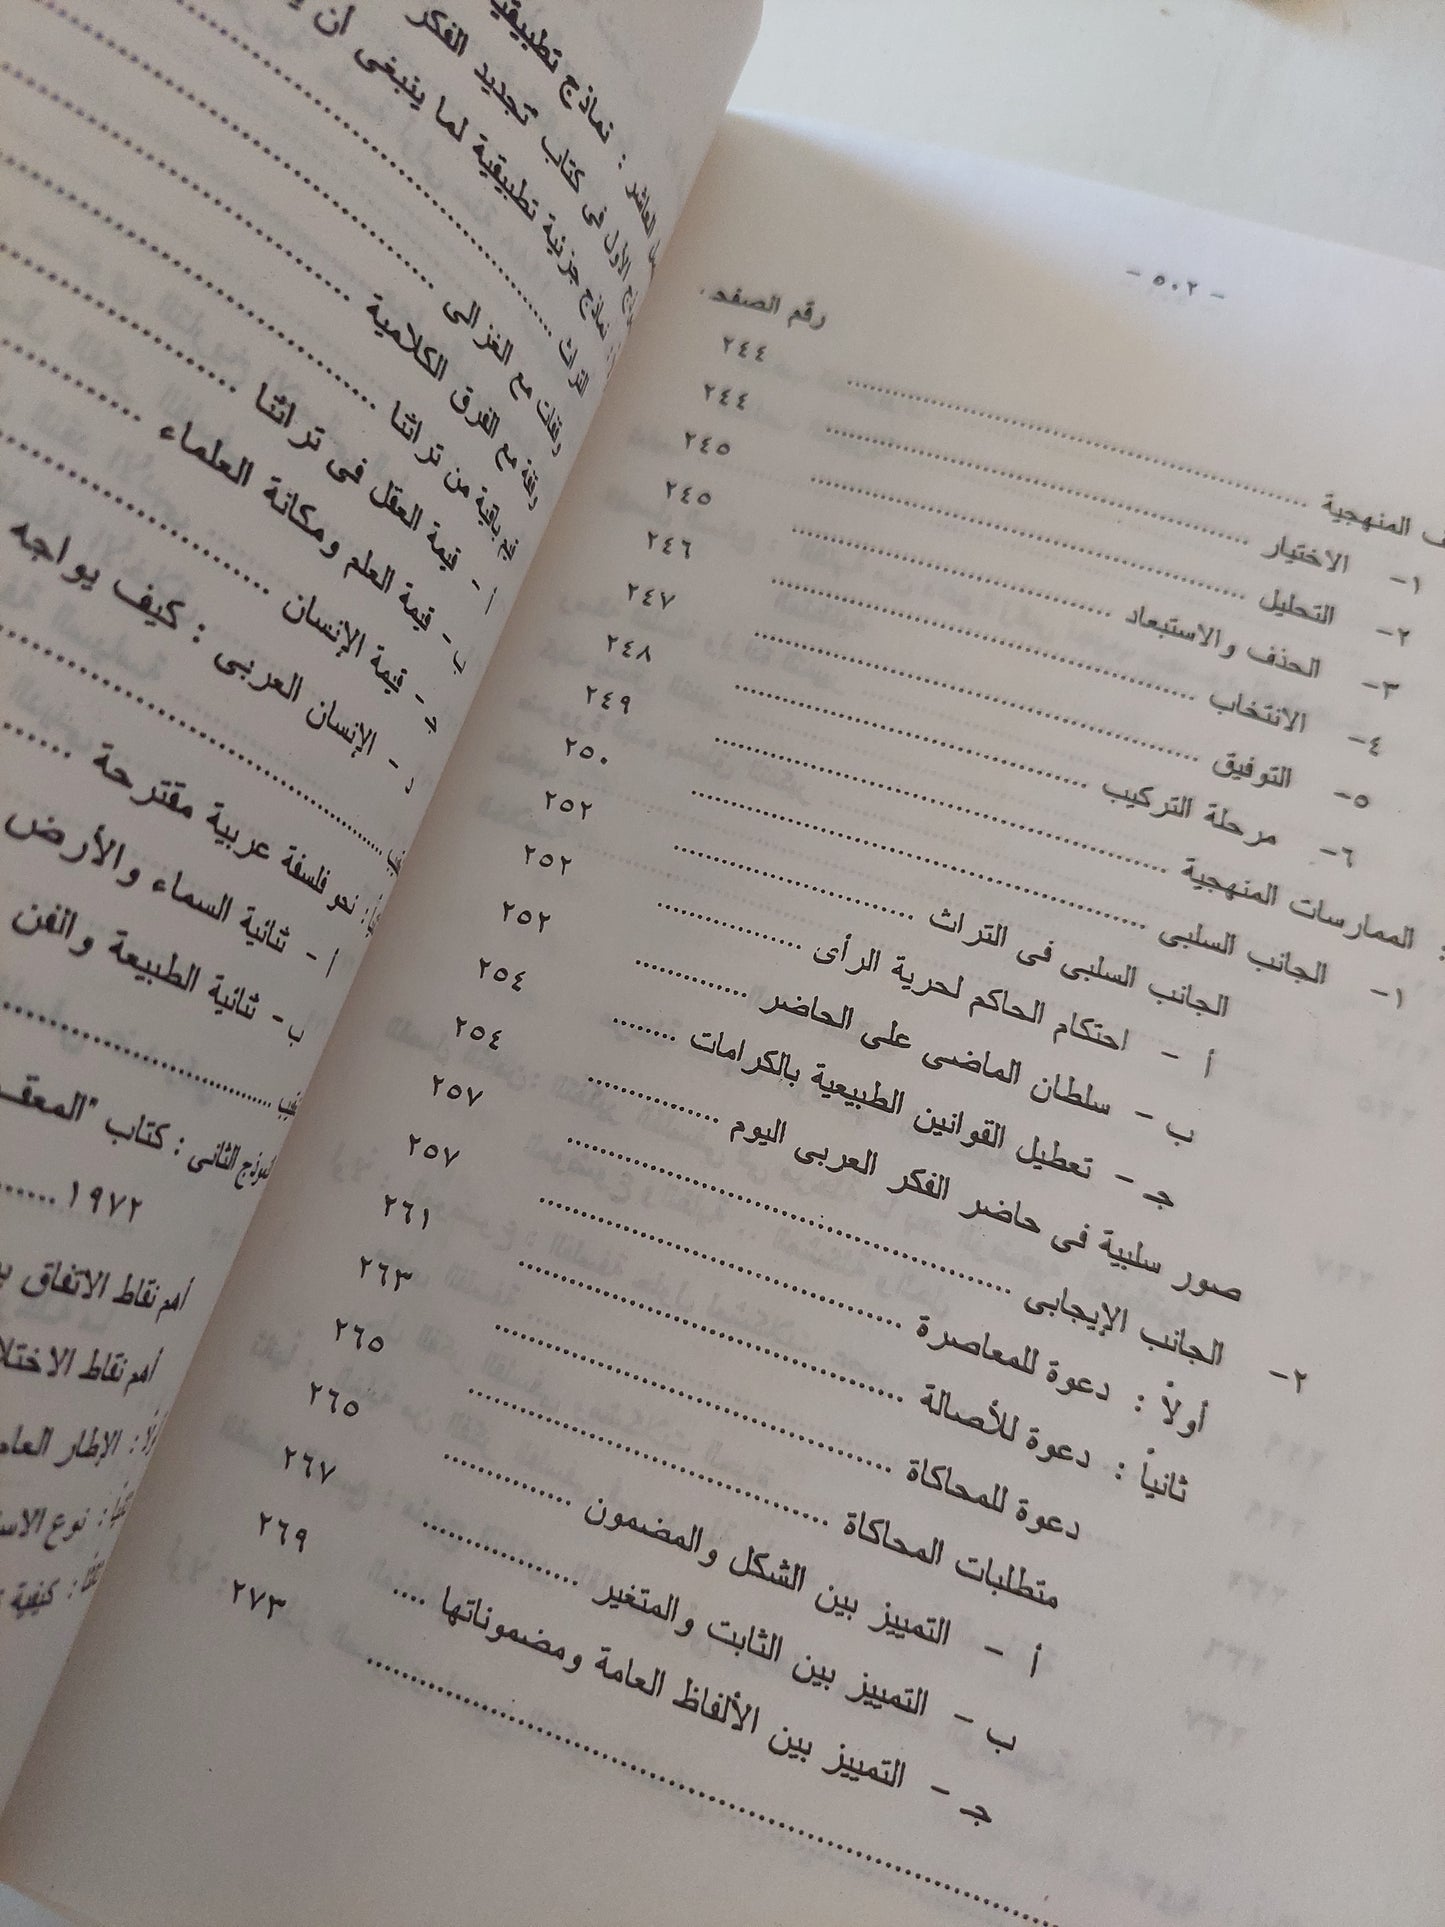 - ٥٠٢ -
رقم الصفحة
المنهجية ........ ٢٤٤
١- الاختيار ........ ٢٤٤
٢- التحليل ........ ٢٤٥
٣- الحذف والاستبعاد ........ ٢٤٥
٤- الانتخاب ........ ٢٤٦
٥- التوفيق ........ ٢٤٧
٦- مرحلة التركيب ........ ٢٤٨
: الممارسات المنهجية ........ ٢٤٩
١- الجانب السلبى ........ ٢٥٠
الجانب السلبى فى التراث ........ ٢٥٢
أ - احتكام الحاكم لحرية الرأى ........ ٢٥٢
ب - سلطان الماضى على الحاضر ........ ٢٥٢
جـ - تعطيل القوانين الطبيعية بالكرامات ........ ٢٥٤
صور سلبية فى حاضر الفكر العربى اليوم ........ ٢٥٤
٢- الجانب الإيجابى ........ ٢٥٧
أولاً : دعوة للمعاصرة ........ ٢٥٧
ثانياً : دعوة للأصالة ........ ٢٦١
دعوة للمحاكاة ........ ٢٦٣
متطلبات المحاكاة ........ ٢٦٥
أ - التمييز بين الشكل والمضمون ........ ٢٦٥
ب - التمييز بين الثابت والمتغير ........ ٢٦٧
جـ - التمييز بين الألفاظ العامة ومضموناتها .... ٢٦٩
........ ٢٧٣
العاشر : نماذج
الأول فى كتاب تجديد الفكر
نماذج جزئية تطبيقية لما ينبغى أن
التراث ........
وقفات مع الغزالى ........
وقفة مع الفرق الكلامية ........
باقية من تراثنا ........
أ - قيمة العقل فى تراثنا ........
ب - قيمة العلم ومكانة العلماء ........
جـ - قيمة الإنسان ........
د - الإنسان العربى : كيف يواجه
........
: نحو فلسفة عربية مقترحة ........
أ - ثنائية السماء والأرض
ب - ثنائية الطبيعة والفن
........
النموذج الثانى : كتاب "المعقـ
١٩٧٢ ........
أهم نقاط الاتفاق
أهم نقاط
: الإطار
: نوع
: كيفية